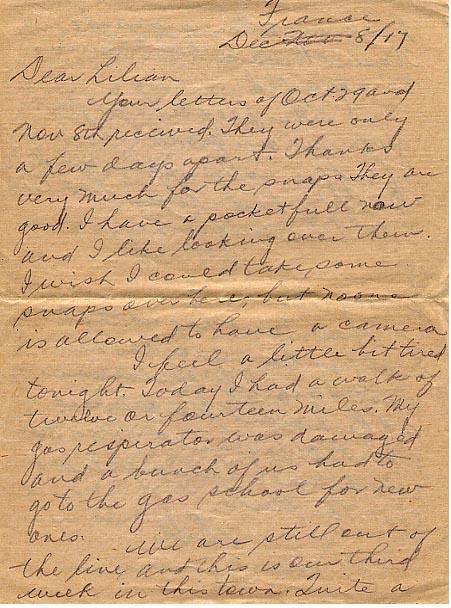 France
Dec Nov 8/17
Dear Lilian
Your letters of Oct 29 and
Nov 8th received. They were only
a few days apart. Thanks
very much for the snaps They are
good. I have a pocketfull now
and I like looking over them.
I wish I could take some
snaps over here, but no one
is allowed to have a camera
I feel a little bit tired
tonight. Today I had a walk of
twelve or fourteen miles. My
gas respirator was damaged
and a bunch of us had to
go to the gas school for new
ones.
We are still out of
the line and this is our third
week in this town. Quite a